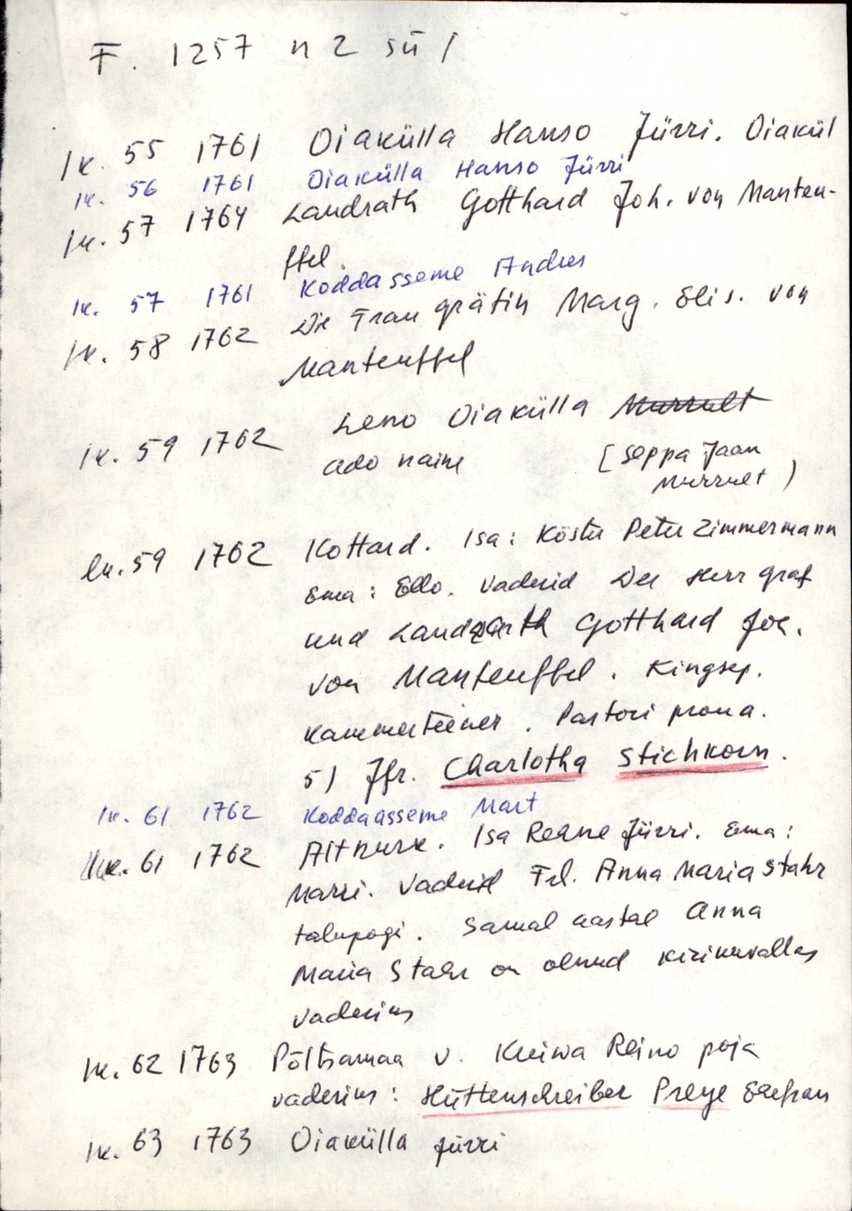 F. 1257 n 2 sü 1
lk. 55 1761 Oiakülla Hanso Jürri. Oiakül
lk. 56 1761 Oiakülla Hanso Jürri
lk. 57 1764 Landrath Gotthard Joh. von Manteu-
ffel.
lk. 57 1761 Koddasseme Andres
lk. 58 1762 Die Frau gräfin Marg. Elis. von
Manteuffel
lk. 59 1762 Leno Oiakülla Murrult
ado naine [Seppa Jaan
Murruet )
lk. 59 1762 Kottard. Isa: Köster Peter Zimmermann
Ema: Ello. Vaderid Der Herr graf
und Landrath Gotthard Joh.
von Manteuffel. Kingsep.
Kammerteener. Pastori proua.
5) Jfr. Charlotha Stichkorn.
lk. 61 1762 Koddaasseme Mart
lk. 61 1762 Altkurk. Isa Reane Jürri. Ema:
Marri. Vaderid Frl. Anna Maria Stahr
talupogi. Samal aastal Anna
Maria Stahr on olnud kirikuvallas
vaderiks
lk. 62 1763 Põltsamaa v. Kuiwa Reino poja
vaderiks: Hüttenschreiber Preye
lk. 63 1763 Oiakülla Jürri